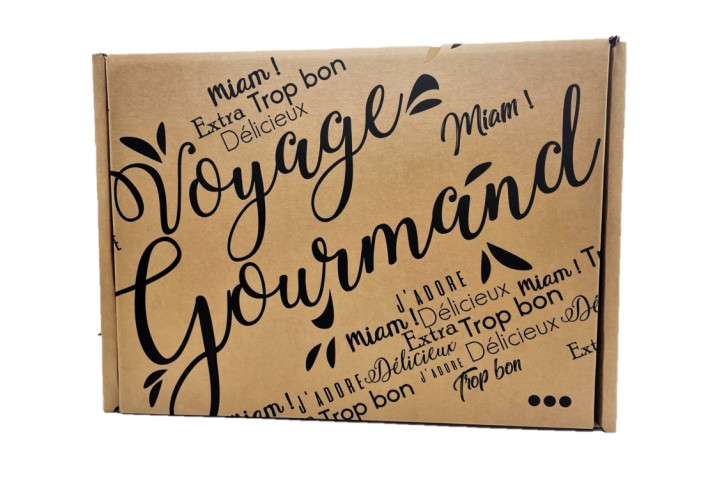 Miam !
Extra Trop bon
Délicieux
Miam !
Voyage
Gourmand
J'ADORE
Miam ! Délicieux Miam ! T
Extra Trop bon
Délicieux J'ADORE Délicieux Dé
Trop bon Ext
Miam ! J'ADORE
Trop bon